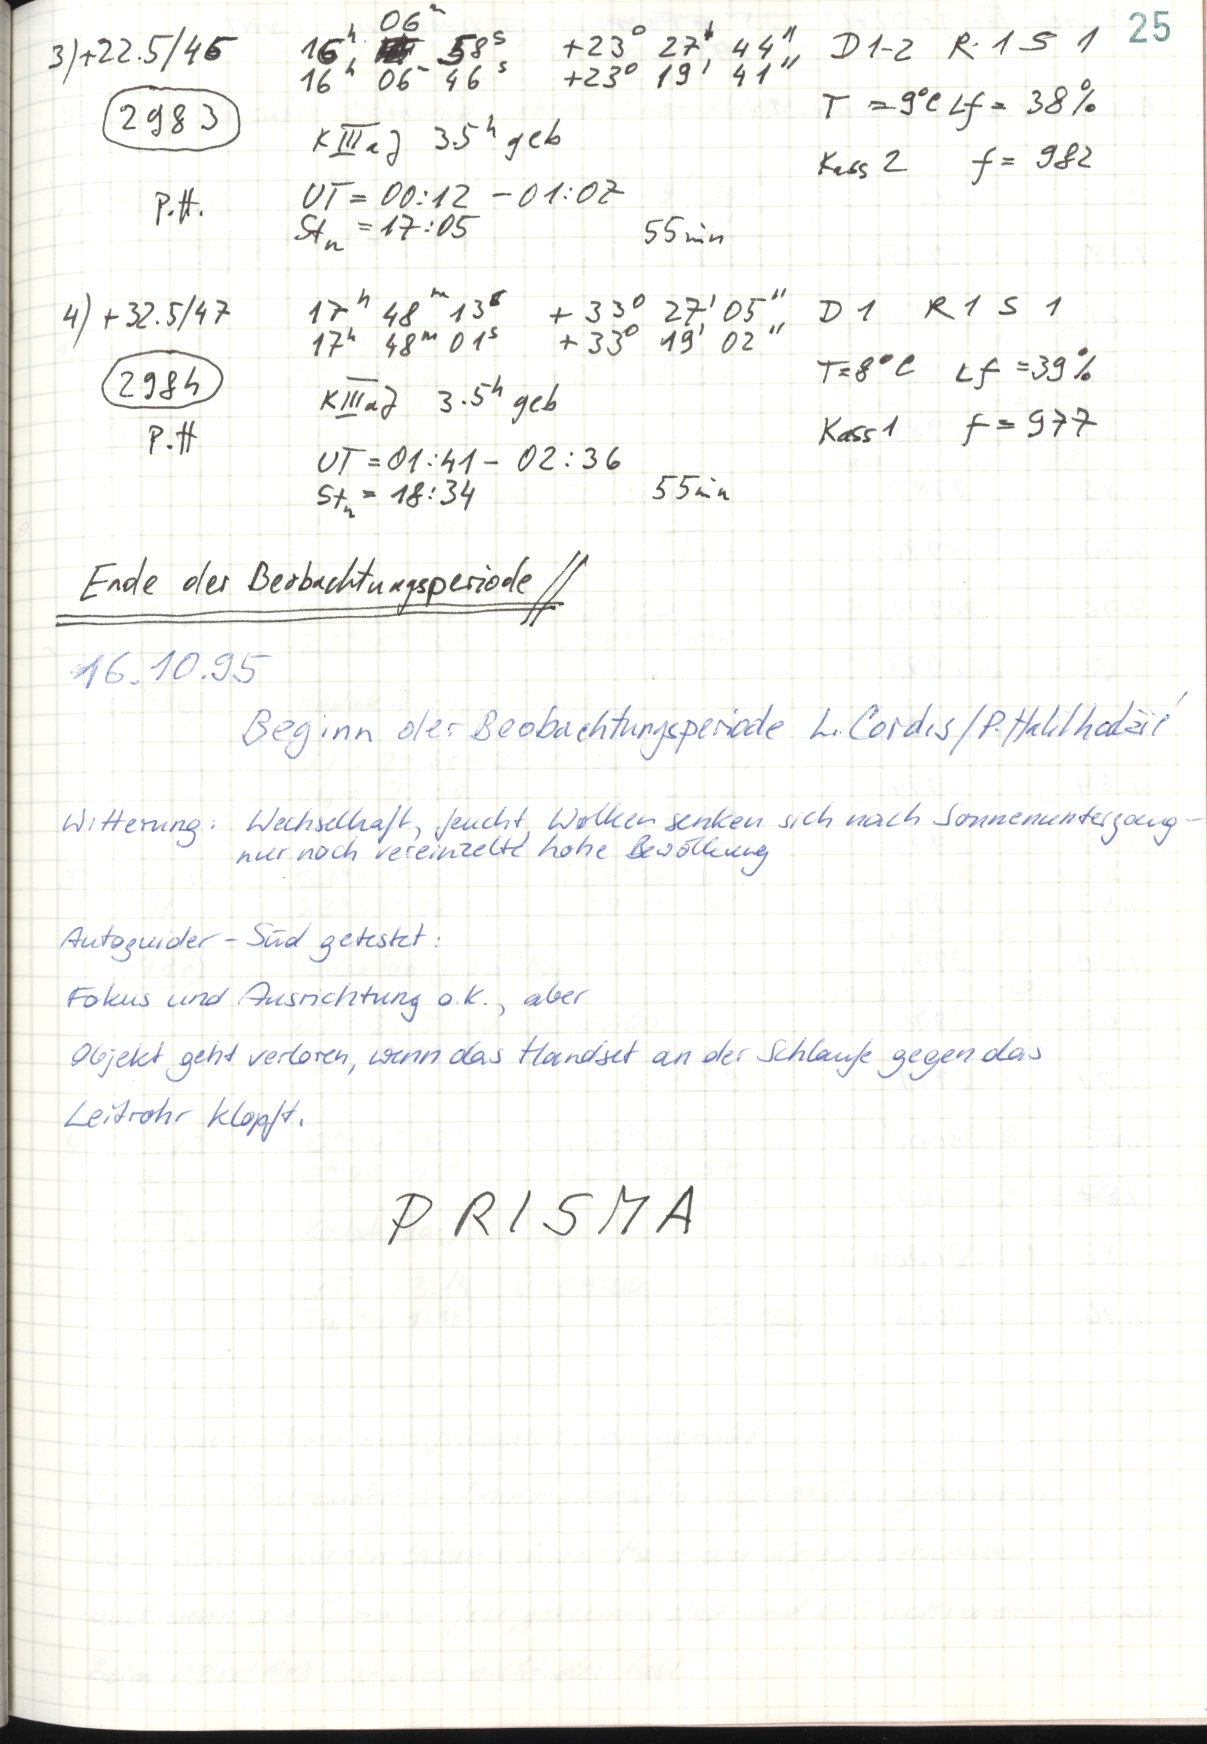 25
3) +22.5/46 16h 06m 58s +23° 27' 44" D1-2 R 1 S 1
16h 06m 46s +23° 19' 41"
2983 T = 9°C Lf = 38%
K III a J 3.5h geb
Kass 2 f = 982
P.H. UT = 00:12 - 01:07
Stn = 17:05 55min
4) +32.5/47 17h 48m 13s +33° 27' 05" D 1 R 1 S 1
17h 48m 01s +33° 19' 02"
2984 T=8°C Lf = 39%
K III a J 3.5h geb
P.H Kass 1 f = 977
UT = 01:41 - 02:36
Stn = 18:34 55min
Ende der Beobachtungsperiode //
16.10.95
Beginn der Beobachtungsperiode L. Cordis / P. Halilhodžić
Witterung: Wechselhaft, feucht, Wolken senken sich nach Sonnenuntergang -
nur noch vereinzelte hohe Bewölkung
Autoguider - Süd getestet:
Fokus und Ausrichtung o.k., aber
Objekt geht verloren, wenn das Handset an der Schlaufe gegen das
Leitrohr klopft.
PRISMA